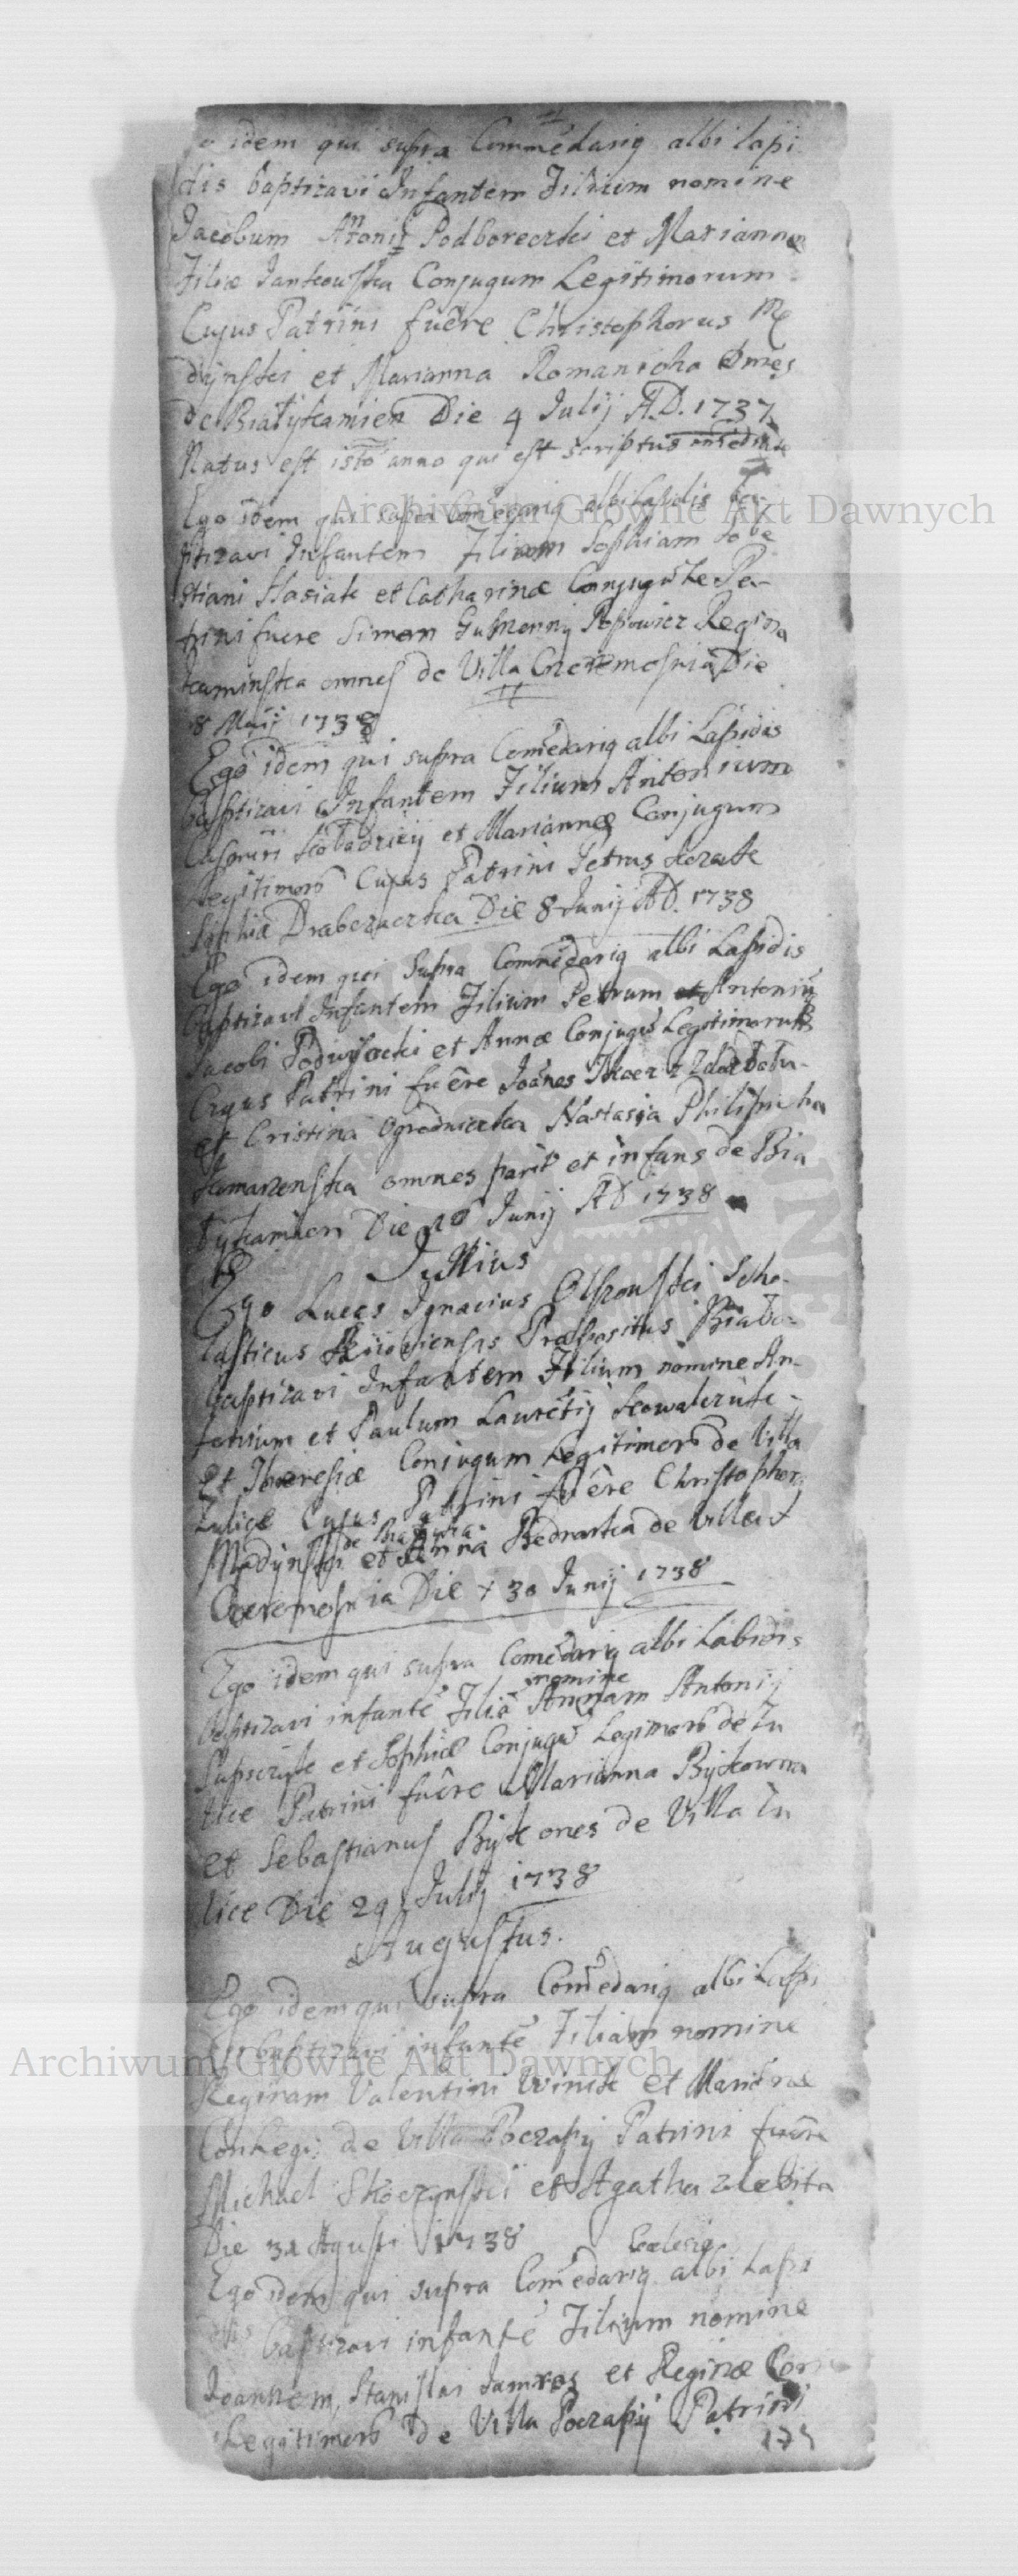 idem qui supra Commēdariq albi lapi
dis baptizavi Infantem Filium nomine
Jacobum Antonij Podborecki et Mariannæ
Filiæ Jankowska Conjugum Legitimorum
Cujus Patrini fuêre Christophorus Mę
dynski et Marianna Romanicha omēs
de Białykamien Die 4 Julij A.D. 1737
Natus est isto anno qui est scriptus
Ego idem qui supra Comēdariq albi Lapidis ba-
ptizavi Infantem Filiam Sophiam Seba
stiani Stasiak et Catharinæ Conjugū Le Pa-
trini fuere Simon Gumenny Popowicz Regina
kaminska omnes de Villa Czeremosnia Die
8 Maij 1738
Ego idem qui supra Comēdariq albi Lapidis
baptizavi Infantem Filium Antonium
Casparri et Mariannæ Conjugum
Legitimorō Cujus Patrini Petrus
Sophia Die 8 Junij AD. 1738
Ego idem qui supra Commēdariq albi Lapidis
baptizavi Infantem Filium Petrum et Antoniū
Jacobi Podwysocki et Annæ Conjugū Legitimorum
Cujus Patrini fuêre Joānes Tkacz
et Cristina Ogrodniczka Nastasija Philipicha
omnes parit et infans de Bia
łykamien Die 10 Junij AD 1738
Julius
Ego Lucas Ignacius Olszowski Scho-
lasticus Kiioviensis Præpositus Biało-
baptizavi Infantem Filium nomine An-
tonium et Paulum Laurētij kowalczuk
Et Theresiæ Conjugum Legitimorō de Villa
Zulice Cujus Patrini fuêre Christophorq
Mędynski et Anna Bednarska de Villa
Czeremosnia Die 30 Junij 1738
Ego idem qui supra Comēdariq albi Labidis
nomine
baptizavi infantē Filiā Annam Antonij
et Sophiæ Conjugū Legimorō de Zu
lice Patrini fuêre Marianna Bykowna
et Sebastianus Byk ones de Villa Zu
lice Die 29 Julij 1738
Augustus.
Ego idem qui supra Comēdariq albi Lapi
dis baptizavi infantē Filiam nomine
Reginam Valentini Winik et Mariānæ
Conlegi: de Villa Poczapij Patrini fuêre
Michael Skoczynski et Agatha
Die 31 Agusti 1738
Ecclesiæ
Ego idem qui supra Comēdariq albi Lapi
dis baptizavi infantē Filium nomine
Joannem, Stanislai Jamroz et Reginæ Con
Legitimorō De Villa Poczapij Patrini
175
Archiwum Główne Akt Dawnych
Archiwum Główne Akt Dawnych